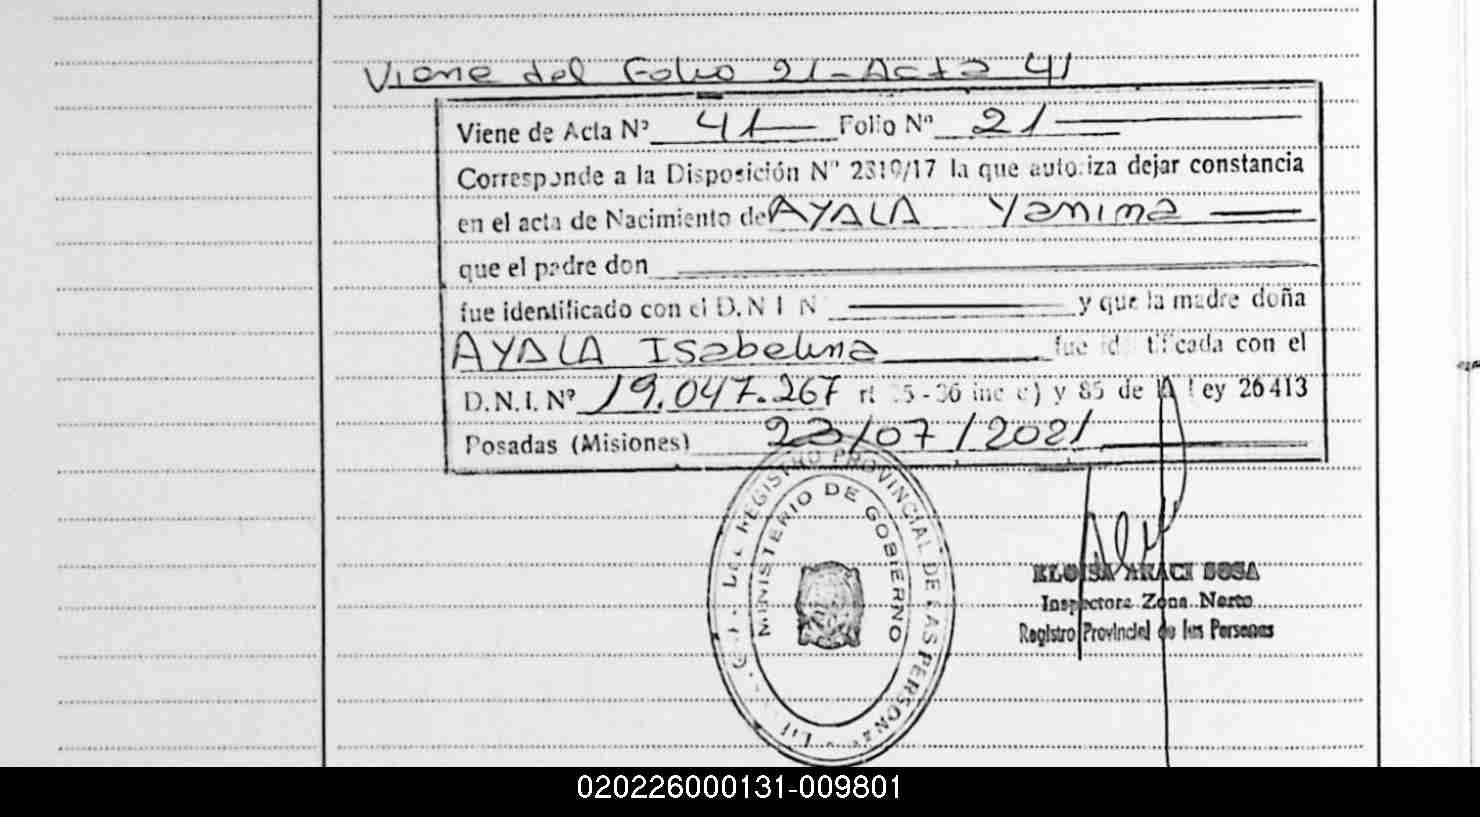 Viene del Folio 21 - Acta 41
Viene de Acta Nº 41 Folio Nº 21
Corresponde a la Disposición Nº 2319/17 la que autoriza dejar constancia
en el acta de Nacimiento de AYALA Yanima
que el padre don
fue identificado con el D.N I N y que la madre doña
AYALA Isabelina fue id tificada con el
D.N.I. Nº 19.047.267 rt 35-36 inc c) y 85 de la Ley 26413
Posadas (Misiones) 23/07/2021
REGISTRO PROVINCIAL DE LAS PERSONAS
MINISTERIO DE GOBIERNO
ELOISA ARACI SOSA
Inspectora Zona Norte
Registro Provincial de las Personas
020226000131-009801